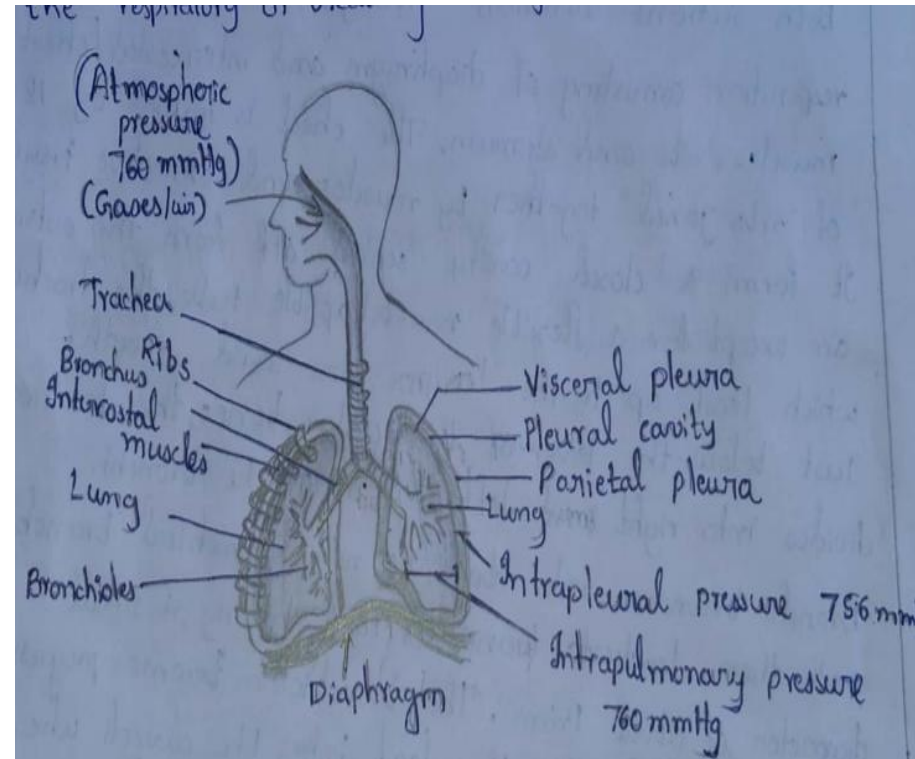 the respiratory or
(Atmospheric
pressure
760 mmHg)
(Gases/air)
Trachea
Ribs
Bronchus
Intercostal
muscles
Lung
Bronchioles
Visceral pleura
Pleural cavity
Parietal pleura
Lung
Intrapleural pressure 756 mm
Intrapulmonary pressure
760 mmHg
Diaphragm